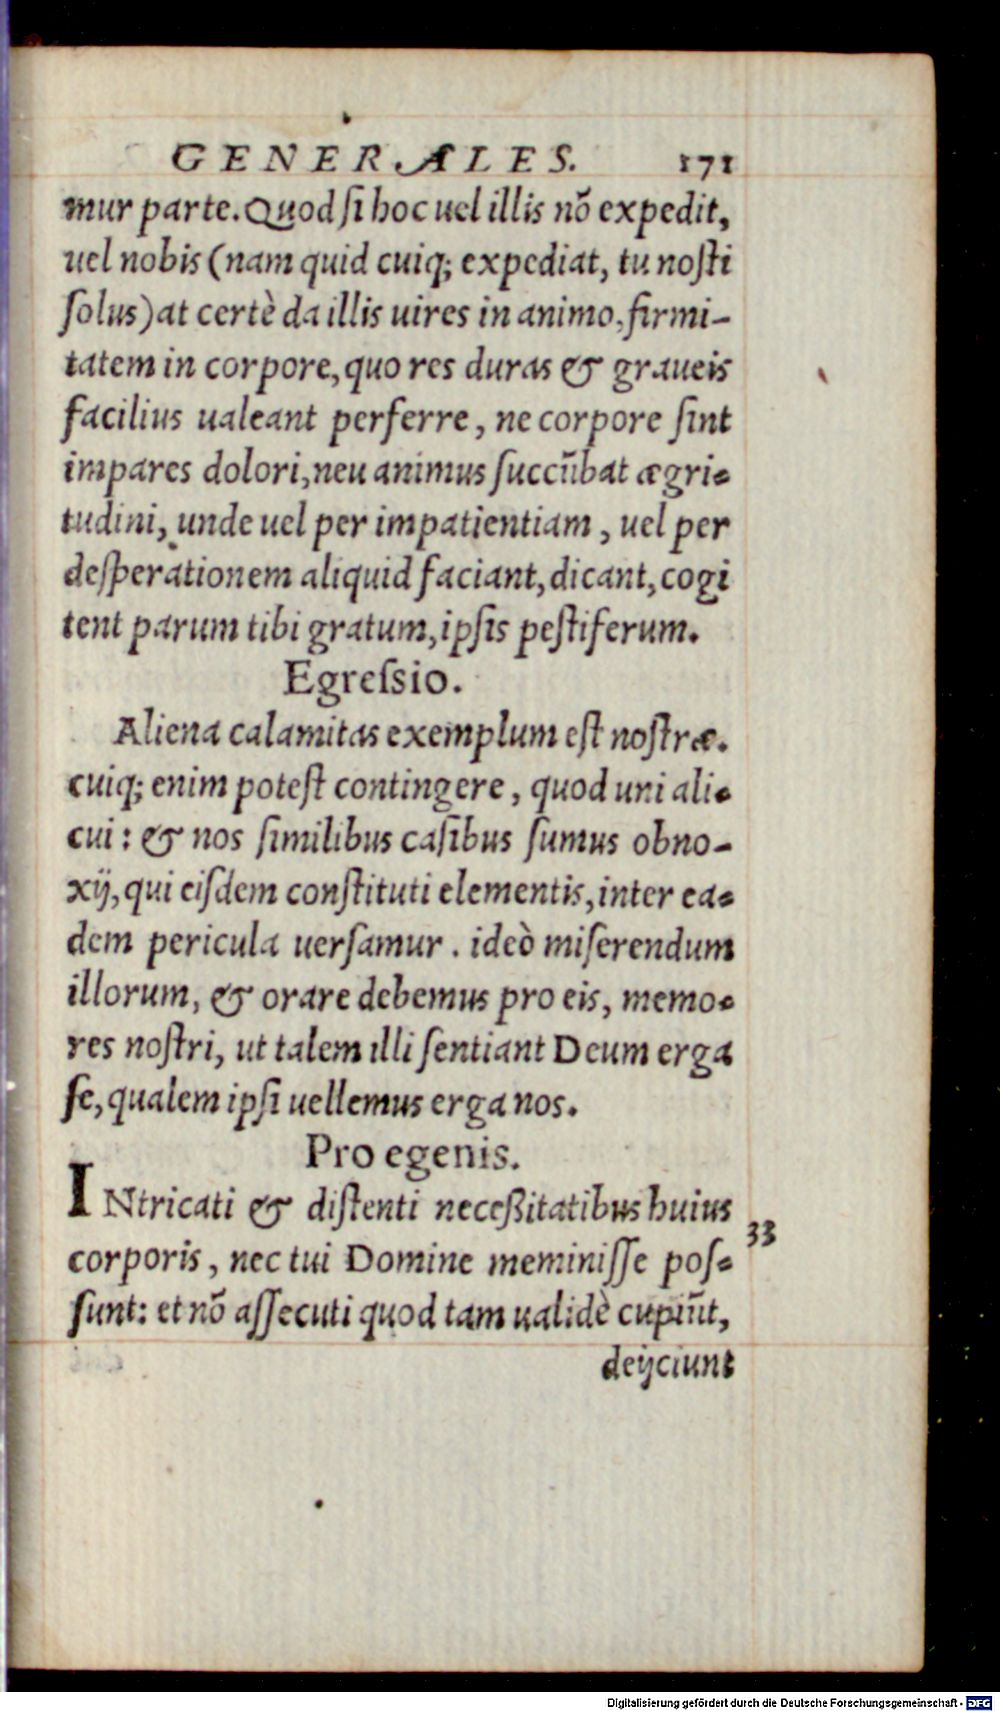 GENERALES. 171
mur parte. Quod ſi hoc uel illis nõ expedit,
uel nobis (nam quid cuiq; expediat, tu noſti
ſolus) at certè da illis uires in animo, firmi-
tatem in corpore, quo res duras & graueis
facilius ualeant perferre, ne corpore ſint
impares dolori, neu animus ſuccũbat ægri-
tudini, unde uel per impatientiam, uel per
deſperationem aliquid faciant, dicant, cogi
tent parum tibi gratum, ipſis peſtiferum.
Egreſsio.
Aliena calamitas exemplum eſt noſtræ.
cuiq; enim poteſt contingere, quod uni ali-
cui: & nos ſimilibus caſibus ſumus obno-
xij, qui eiſdem conſtituti elementis, inter ea-
dem pericula uerſamur. ideò miſerendum
illorum, & orare debemus pro eis, memo-
res noſtri, ut talem illi ſentiant Deum erga
ſe, qualem ipſi uellemus erga nos.
Pro egenis.
INtricati & diſtenti neceßitatibus huius
33
corporis, nec tui Domine meminiſſe poſ-
ſunt: et nõ aſſecuti quod tam ualidè cupiũt,
deijciunt
Digitalisierung gefördert durch die Deutsche Forschungsgemeinschaft - DFG